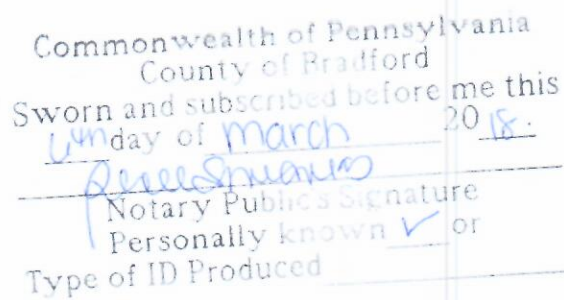 Commonwealth of Pennsylvania
County of Bradford
Sworn and subscribed before me this
day of March 20 18.
Notary Public's Signature
Personally known ✓ or
Type of ID Produced